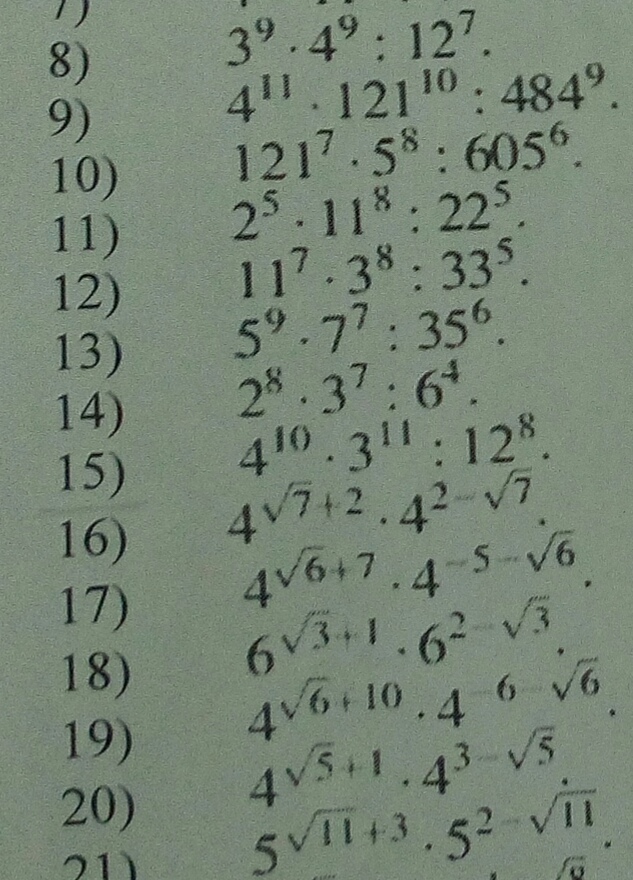 7)
8) 3⁹ · 4⁹ : 12⁷.
9) 4¹¹ · 121¹⁰ : 484⁹.
10) 121⁷ · 5⁸ : 605⁶.
11) 2⁵ · 11⁸ : 22⁵.
12) 11⁷ · 3⁸ : 33⁵.
13) 5⁹ · 7⁷ : 35⁶.
14) 2⁸ · 3⁷ : 6⁴.
15) 4¹⁰ · 3¹¹ : 12⁸.
16) 4^(√7+2) · 4^(2−√7).
17) 4^(√6+7) · 4^(−5−√6).
18) 6^(√3+1) · 6^(2−√3).
19) 4^(√6+10) · 4^(−6−√6).
20) 4^(√5+1) · 4^(3−√5).
21) 5^(√11+3) · 5^(2−√11).